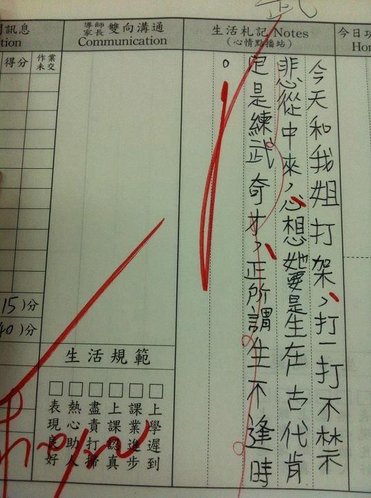 導師
家長 雙向溝通
Communication
生活札記 Notes
(心情點播站)
得分
作業
未交
15)分
40)分
今天和我姐打架，打一打不禁
悲從中來，心想她要是生在古代肯
定是練武奇才，正所謂生不逢時
。
生活規範
□上學遲到
□課業進步
□上課認真
□盡責打掃
□熱心助人
□表現良好